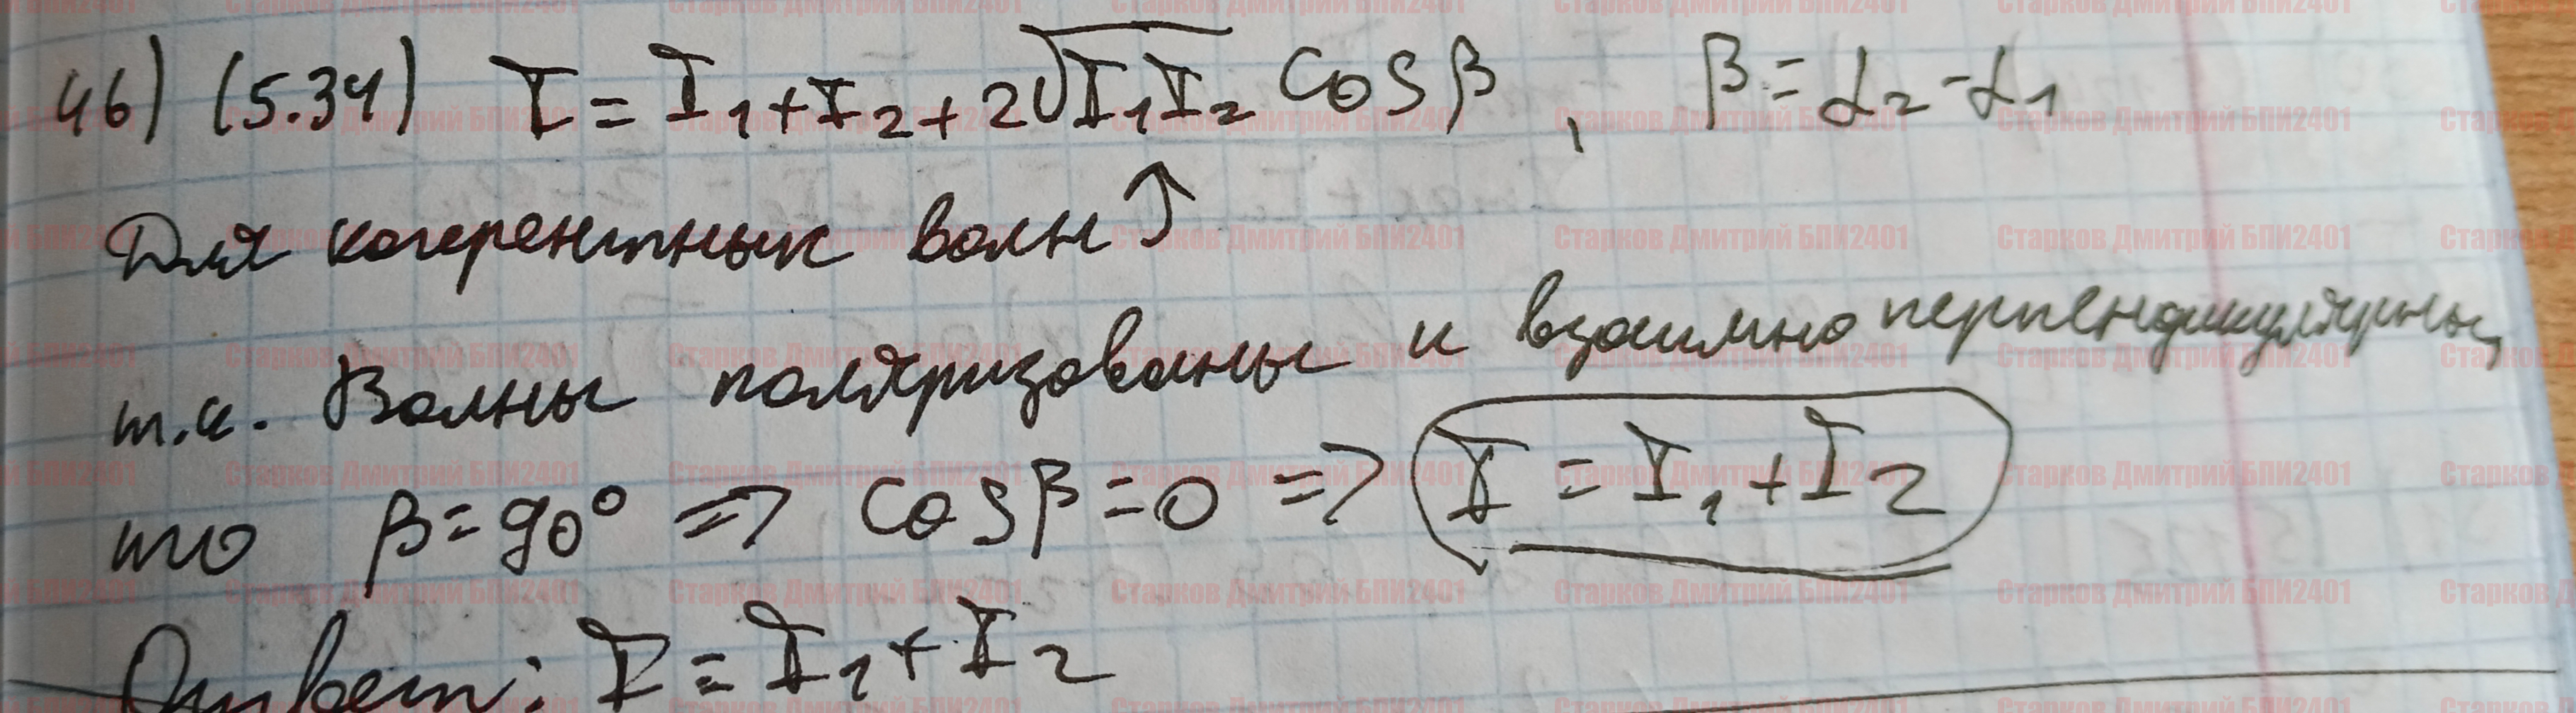 46) (5.34) I = I₁ + I₂ + 2√I₁I₂ cosβ, β = α₂ - α₁
Для когерентных волн ↑
т.к. Волны поляризованы и взаимно перпендикулярны,
то β = 90° => cosβ = 0 => I = I₁ + I₂
Ответ: I = I₁ + I₂
Старков Дмитрий БПИ2401